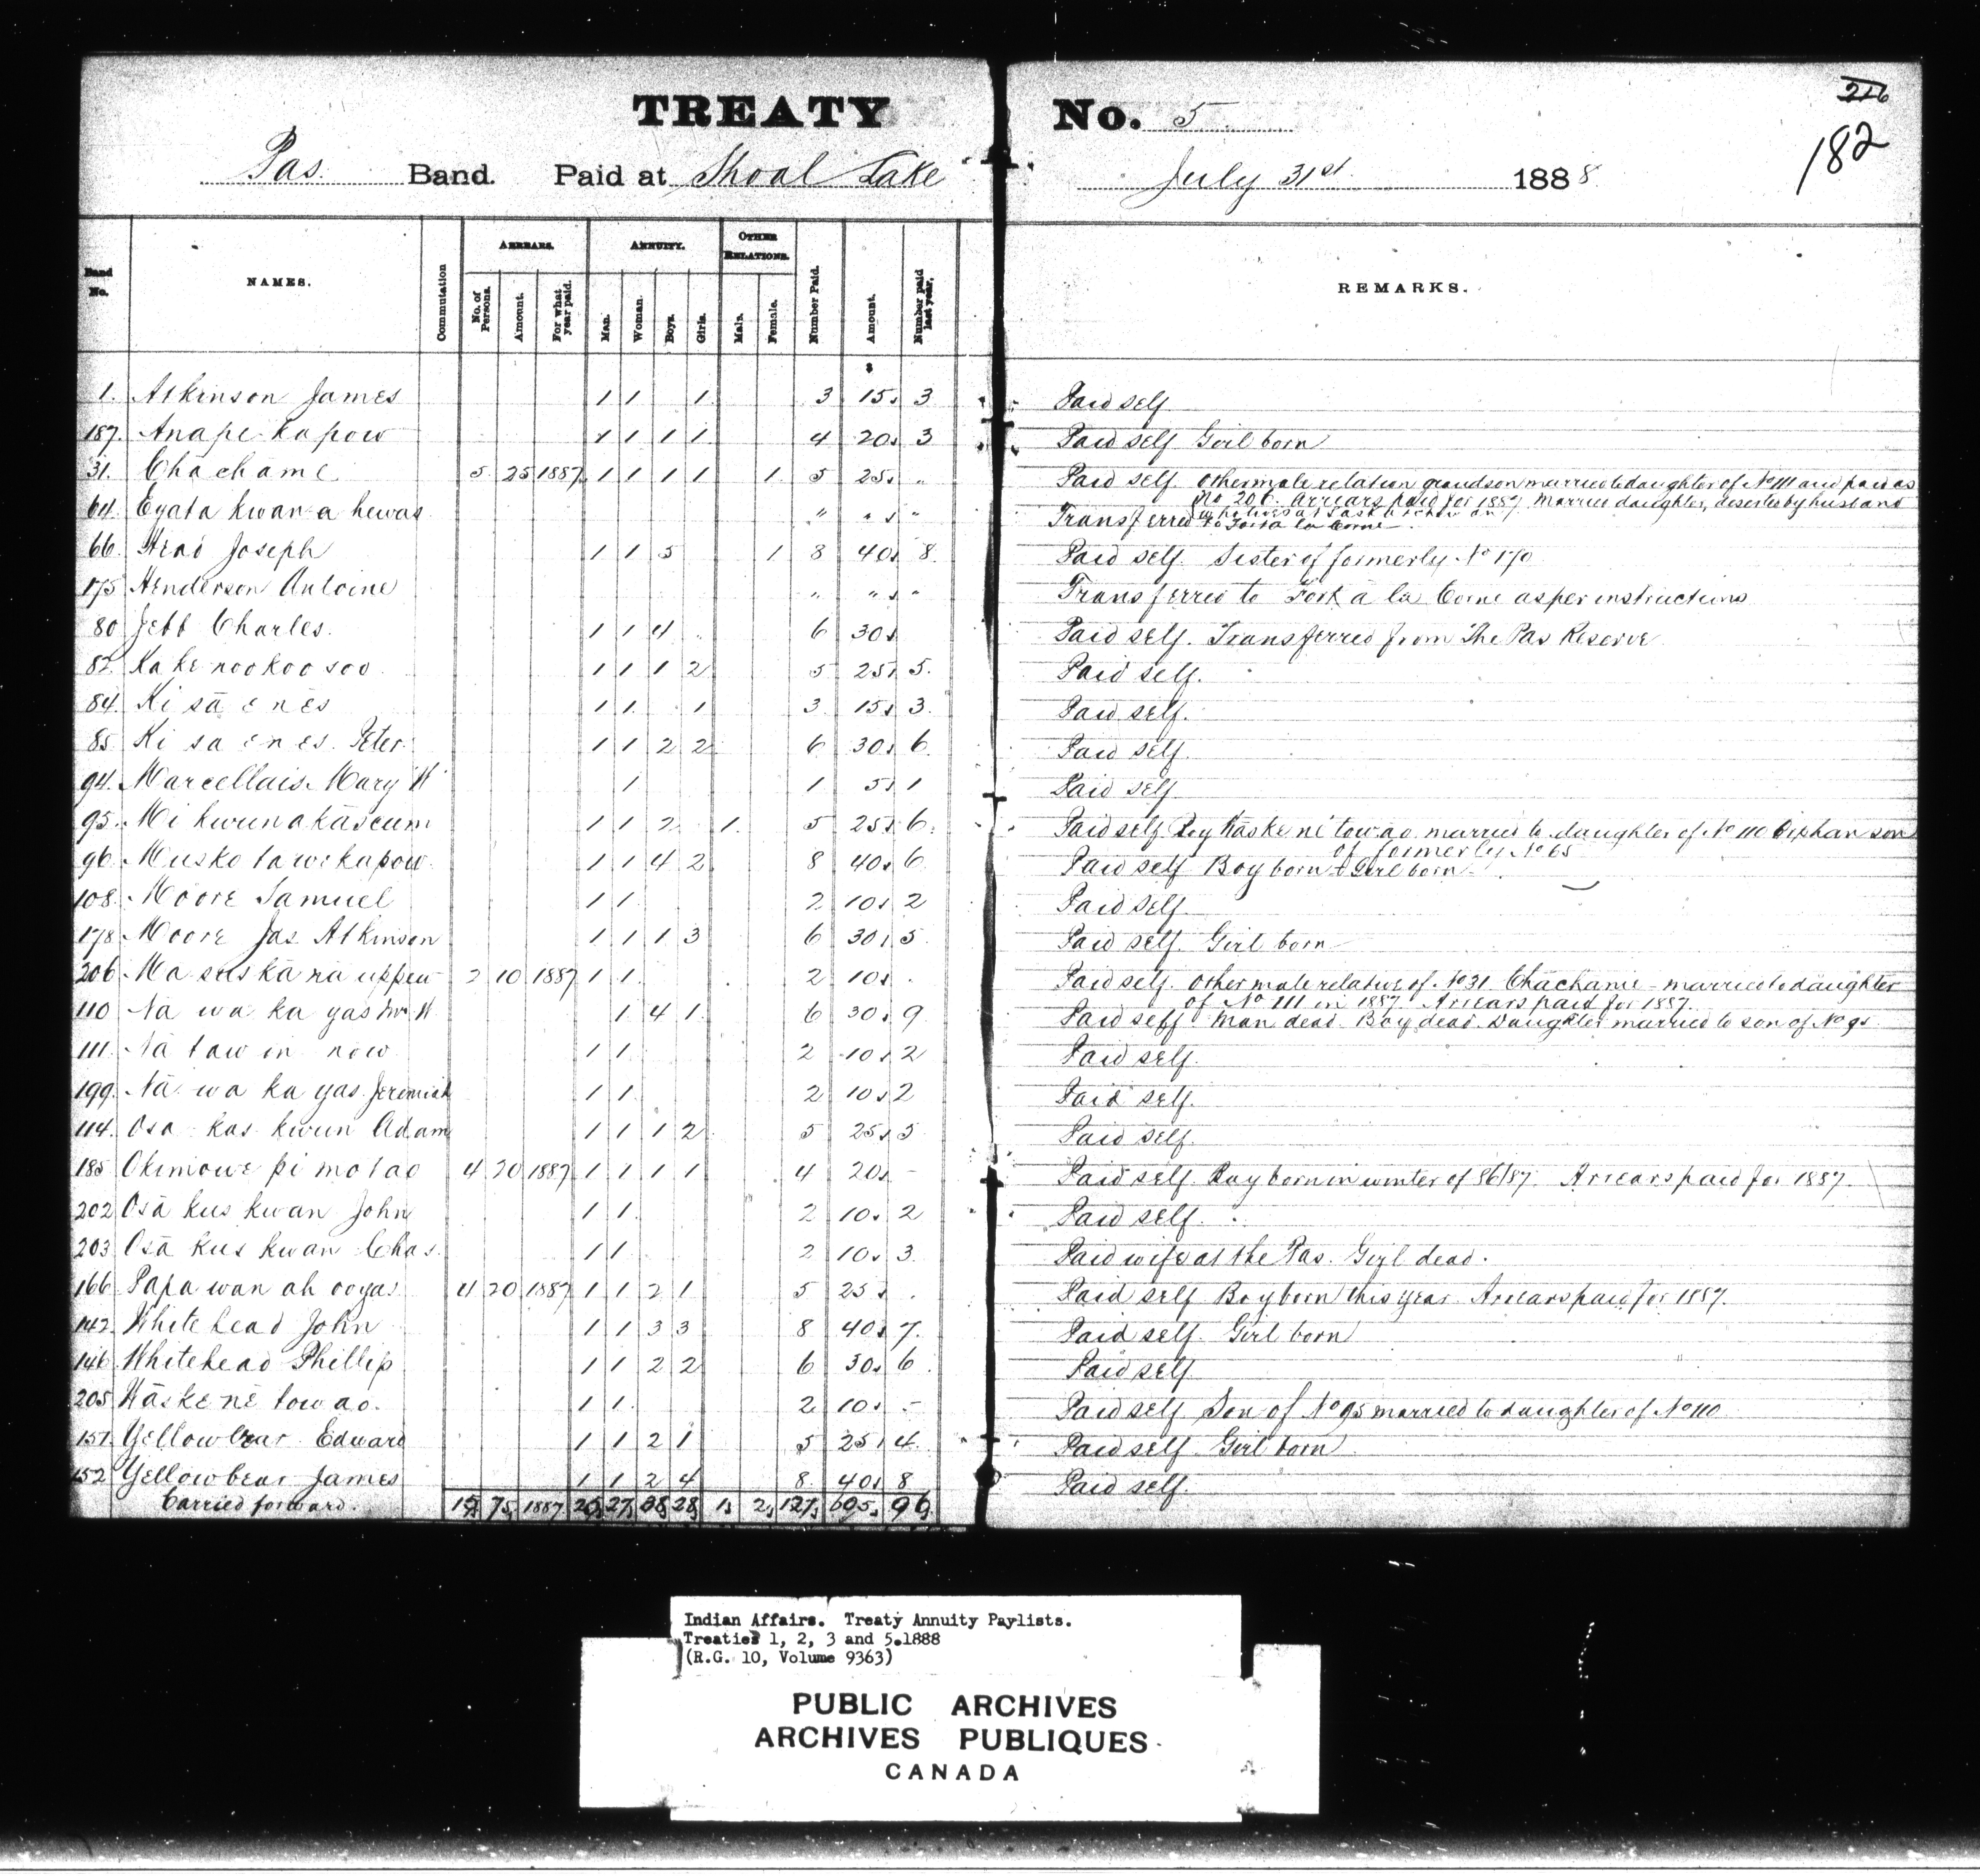 TREATY No. 5
216
182
Pas. Band. Paid at Shoal Lake July 31st 1888
Band No. NAMES. Commutation ARREARS. No. of Persons. Amount. For what year paid. ANNUITY. Man. Woman. Boys. Girls. OTHER RELATIONS. Male. Female. Number Paid. Amount. Number paid last year. REMARKS.
$
1. Atkinson James 1 1 1 3 15. 3 Paid self
187. Anape kapow 1 1 1 1 4 20. 3 Paid self Girl born
31. Chachame 5 25 1887 1 1 1 1 1 5 25. " Paid self other male relation grandson married to daughter of No 111 and paid as
No 206. Arrears paid for 1887. Married daughter, deserted by husband
64. Eyata kwan a hewas " " " Transferred to Fort a la Corne
66. Head Joseph 1 1 5 1 8 40. 8. Paid self. Sister of formerly No 170
175 Henderson Antoine " " " Transferred to Fort a la Corne as per instructions
80 Jebb Charles. 1 1 4 6 30. Paid self. Transferred from The Pas Reserve
82. Kakenookoosoo 1 1 1 2 5 25. 5. Paid self.
84. Ki sā e n ēs 1 1 1 3 15. 3. Paid self.
85. Ki sa en es. Peter. 1 1 2 2 6 30. 6. Paid self.
94. Marcellais Mary W 1 1 5. 1 Paid self
95. Mi kwunakāseum 1 1 2 1. 5 25. 6. Paid self Boy Kāske ni tow ao married to daughter of No 110 Orphan son
of formerly No 65
96. Musko tawekapow 1 1 4 2 8 40. 6. Paid self Boy born & Girl born
108. Moore Samuel 1 1 2 10. 2 Paid self.
178. Moore Jas Atkinson 1 1 1 3 6 30. 5. Paid self. Girl born
206. 2 10 1887 1 1 2 10. Paid self. other male relative of No 31 Chachamie - married to daughter
of No 111 in 1887. Arrears paid for 1887.
110 Nā wa ka yas Mrs W 1 4 1 6 30. 9. Paid self Man dead. Boy dead Daughter married to son of No 95
111. Nā taw in now 1 1 2 10. 2 Paid self.
199. Nā wa ka yas. Jeremiah 1 1 2 10. 2 Paid self.
114. Osa kas kwun Adam 1 1 1 2 5 25. 5 Paid self.
185 Okimowe pi mo tao 4 20 1887 1 1 1 1 4 20. - Paid self Boy born in winter of 86/87. Arrears paid for 1887.
202 Osā kus kwan John 1 1 2 10. 2 Paid self.
203 Osā kus kwan Chas. 1 1 2 10. 3. Paid wife at the Pas. Girl dead.
166 Papa wan ah ooyas 4 20 1887 1 1 2 1 5 25. Paid self Boy born this year Arrears paid for 1887.
142 Whitehead John 1 1 3 3 8 40. 7. Paid self. Girl born
146 Whitehead Phillip 1 1 2 2 6 30. 6. Paid self
205 Kāske nē tow ao. 1 1 2 10. - Paid self Son of No 95 married to daughter of No 110
151 Yellowbear Edward 1 1 2 1 5 25. 4. Paid self Girl born
152 Yellowbear James 1 1 2 4 8 40. 8 Paid self.
Carried forward. 15 75 1887 27 38 28 1 2 127 96
Indian Affairs. Treaty Annuity Paylists.
Treaties 1, 2, 3 and 5. 1888
(R.G. 10, Volume 9363)
PUBLIC ARCHIVES
ARCHIVES PUBLIQUES
CANADA